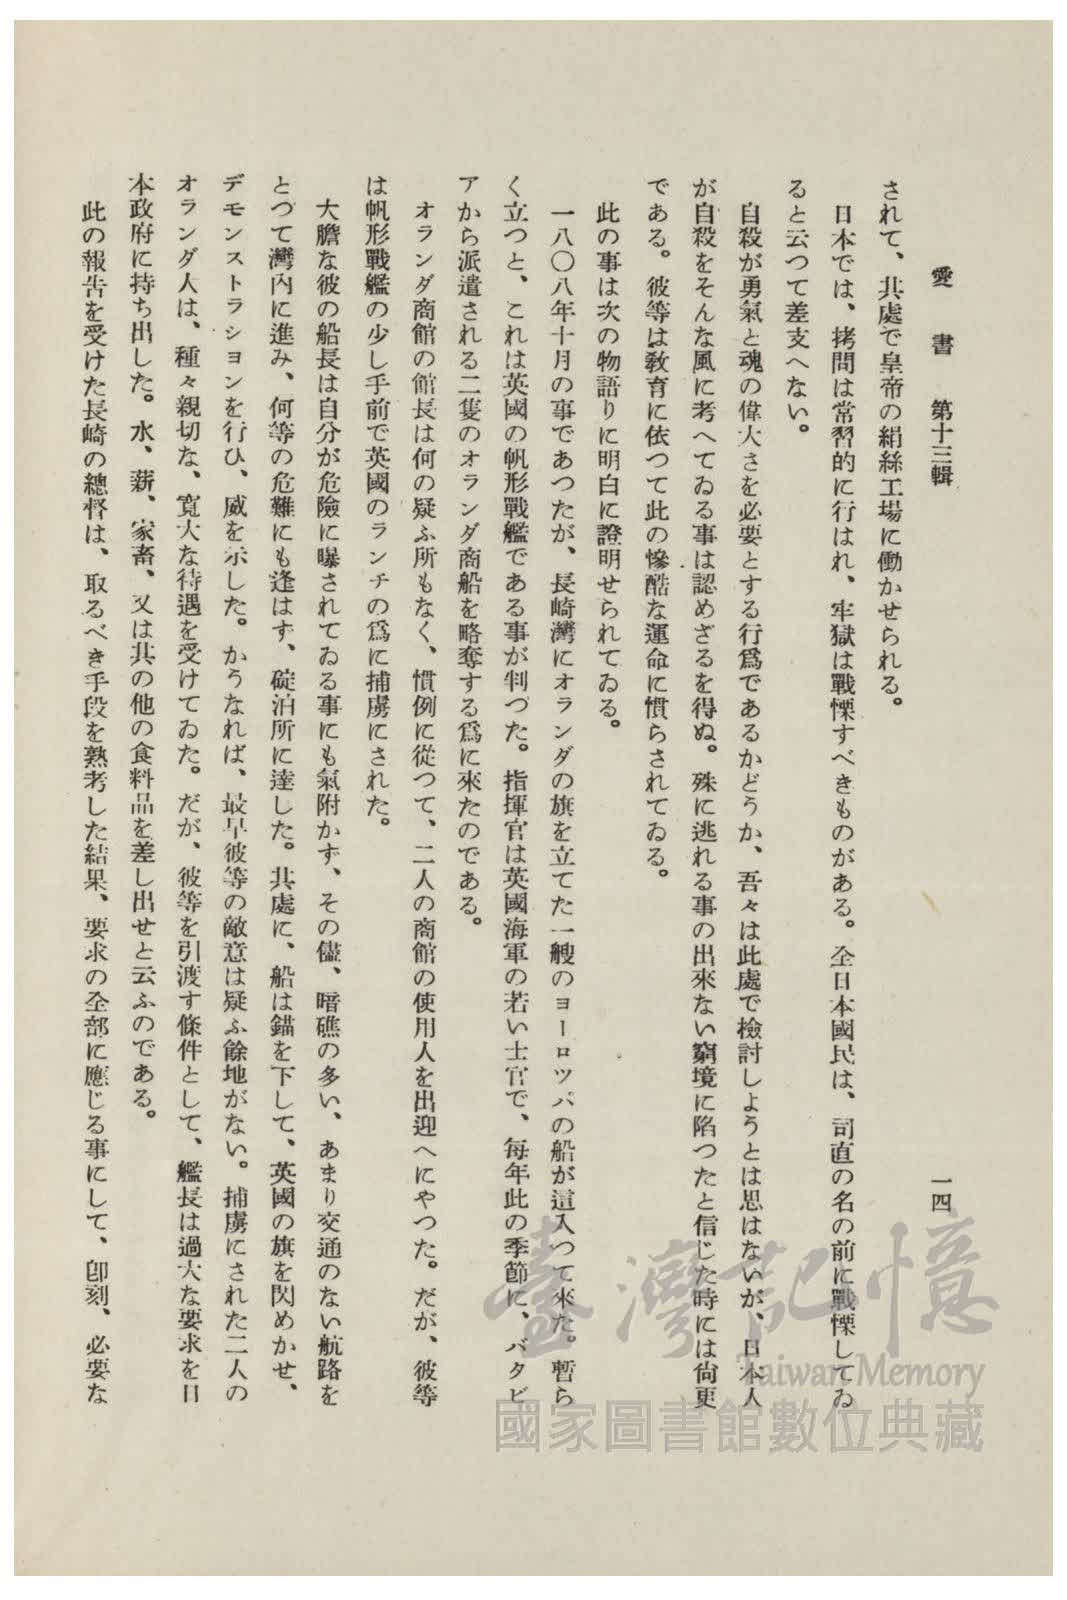 愛書 第十三輯
一四
されて、其處で皇帝の絹絲工場に働かせられる。
日本では、拷問は常習的に行はれ、牢獄は戰慄すべきものがある。全日本國民は、司直の名の前に戰慄してゐ
ると云つて差支へない。
自殺が勇氣と魂の偉大さを必要とする行爲であるかどうか、吾々は此處で檢討しようとは思はないが、日本人
が自殺をそんな風に考へてゐる事は認めざるを得ぬ。殊に逃れる事の出來ない窮境に陷つたと信じた時には尙更
である。彼等は敎育に依つて此の慘酷な運命に慣らされてゐる。
此の事は次の物語りに明白に證明せられてゐる。
一八〇八年十月の事であつたが、長崎灣にオランダの旗を立てた一艘のヨーロツパの船が這入つて來た。暫ら
く立つと、これは英國の帆形戰艦である事が判つた。指揮官は英國海軍の若い士官で、每年此の季節に、バタビ
アから派遣される二隻のオランダ商船を略奪する爲に來たのである。
オランダ商館の館長は何の疑ふ所もなく、慣例に從つて、二人の商館の使用人を出迎へにやつた。だが、彼等
は帆形戰艦の少し手前で英國のランチの爲に捕虜にされた。
大膽な彼の船長は自分が危險に曝されてゐる事にも氣附かず、その儘、暗礁の多い、あまり交通のない航路を
とつて灣內に進み、何等の危難にも逢はず、碇泊所に達した。其處に、船は錨を下して、英國の旗を閃めかせ、
デモンストラシヨンを行ひ、威を示した。かうなれば、最早彼等の敵意は疑ふ餘地がない。捕虜にされた二人の
オランダ人は、種々親切な、寬大な待遇を受けてゐた。だが、彼等を引渡す條件として、艦長は過大な要求を日
本政府に持ち出した。水、薪、家畜、又は其の他の食料品を差し出せと云ふのである。
此の報告を受けた長崎の總督は、取るべき手段を熟考した結果、要求の全部に應じる事にして、卽刻、必要な
臺灣記憶
Taiwan Memory
國家圖書館數位典藏